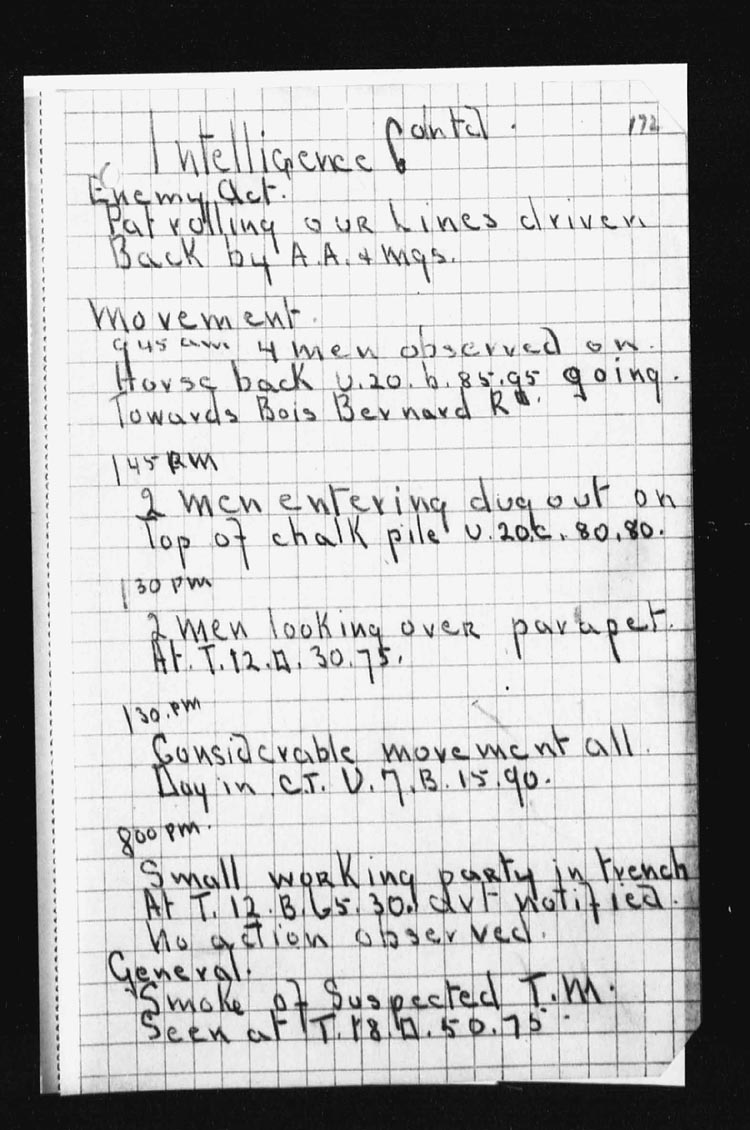 172
Intelligence Contd.
Enemy Act.
Patrolling our Lines driven
Back by A.A. & Mgs.
Movement.
9 45 am 4 men observed on.
Horse back U.20.b.85.95 going.
Towards Bois Bernard Rd.
1 45 PM
2 men entering dug out on
Top of chalk pile U.20.c.80.80.
1 30 pm
2 men looking over parapet.
At. T.12.D.30.75.
1 30.pm
Considerable movement all.
Day in C.T. U.7.B.15.90.
8 00 pm.
Small working party in trench
At T.12.B.65.30. notified.
No action observed.
General.
Smoke of Suspected T.M.
Seen at T.18.D.50.75